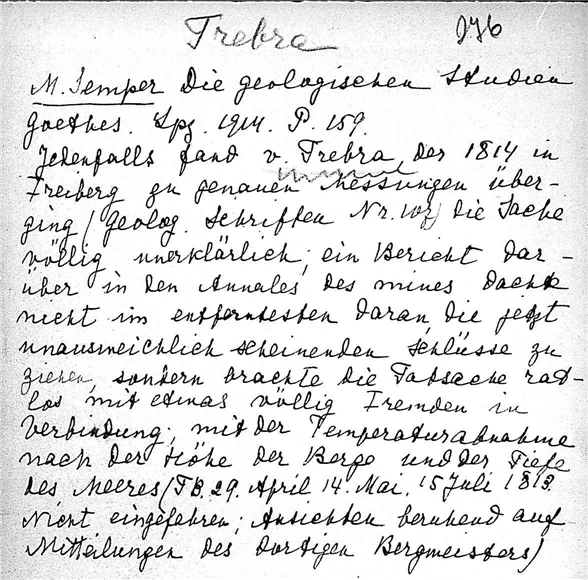 Trebra 276
M. Semper Die geologischen Studien
Goethes. Lpz. 1914. P. 159.
Jedenfalls fand v. Trebra, der 1814 in
Freiberg zu genauen Messungen über-
ging (Geolog. Schriften Nr. ) die Sache
völlig unerklärlich; ein Bericht dar-
über in den Annales des mines dachte
nicht im entferntesten daran die jetzt
unausweichlich scheinenden Schlüsse zu
ziehen, sondern brachte die Tatsache rat-
los mit etwas völlig Fremden in
Verbindung; mit der Temperaturabnahme
nach der Höhe der Berge und der Tiefe
des Meeres (TB. 29. April 14. Mai. 15 Juli 1813.
Nicht eingefahren; Ansichten beruhend auf
Mitteilungen des dortigen Bergmeisters)